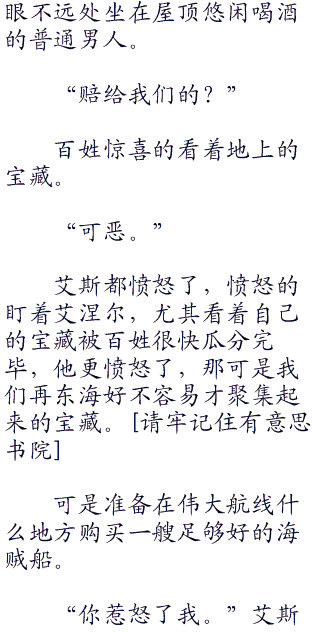 眼不远处坐在屋顶悠闲喝酒
的普通男人。
“赔给我们的？”
百姓惊喜的看着地上的
宝藏。
“可恶。”
艾斯都愤怒了，愤怒的
盯着艾涅尔，尤其看着自己
的宝藏被百姓很快瓜分完
毕，他更愤怒了，那可是我
们再东海好不容易才聚集起
来的宝藏。[请牢记住有意思
书院]
可是准备在伟大航线什
么地方购买一艘足够好的海
贼船。
“你惹怒了我。”艾斯